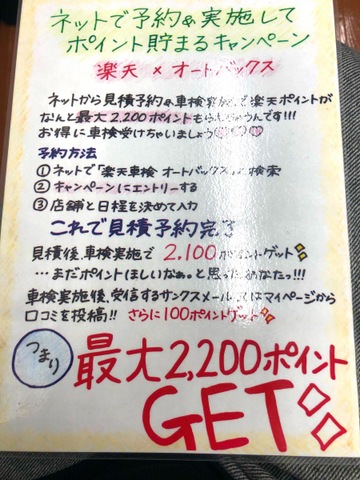 ネットで予約&実施して
ポイント貯まるキャンペーン
楽天 × オートバックス
ネットから見積予約&車検実施で楽天ポイントが
なんと最大2,200ポイントもらえちゃうんです!!!
お得に車検受けちゃいましょう♡♡♡
予約方法
①ネットで「楽天車検 オートバックス」検索
②キャンペーンにエントリーする
③店舗と日程を決めて入力
これで見積予約完了
見積後、車検実施で2,100ポイントゲット
…まだポイントほしいなぁ。と思ったあなたっ!!!
車検実施後、受信するサンクスメールもしくはマイページから
口コミを投稿!! さらに100ポイントゲット
つまり
最大2,200ポイント
GET